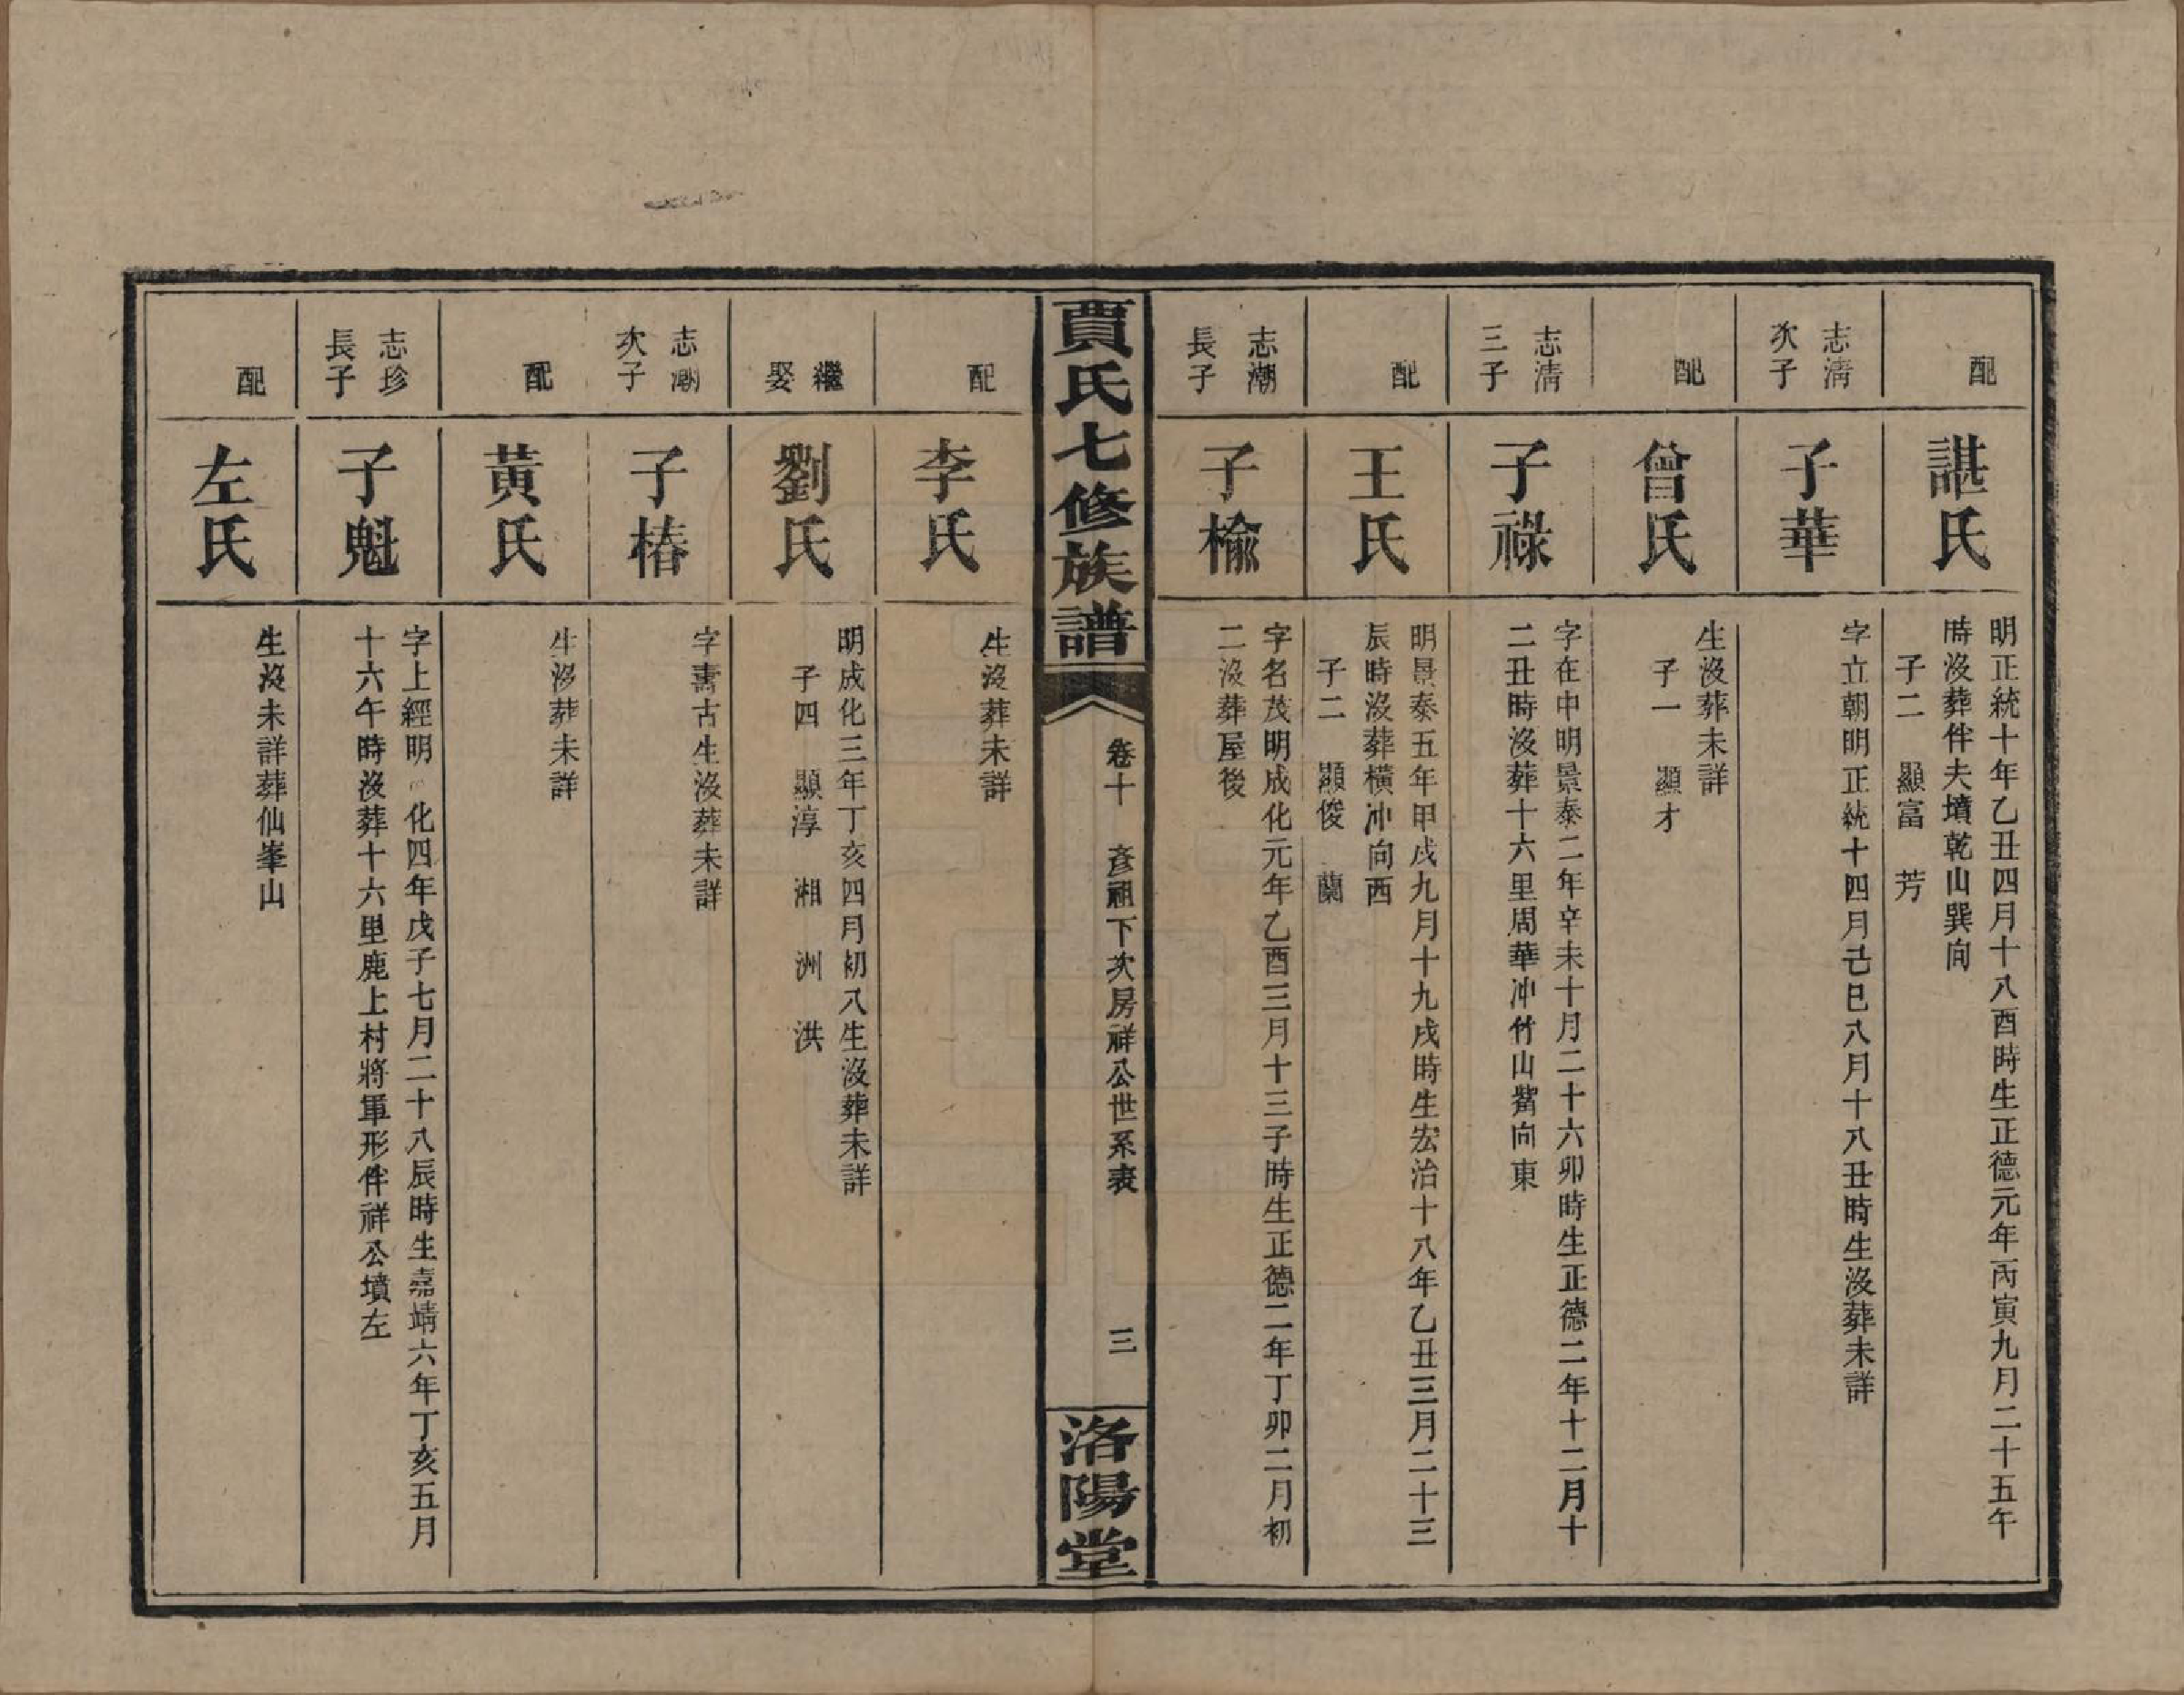 配
諶氏
明正統十年乙丑四月十八酉時生正德元年丙寅九月二十五午
時沒葬伴夫墳乾山巽向
子二　顯富　芳
志清
次子
子華
字立朝明正統十四月己巳八月十八丑時生沒葬未詳
配
曾氏
生沒葬未詳
子一　顯才
志清
三子
子祿
字在中明景泰二年辛未十月二十六卯時生正德二年十二月十
二丑時沒葬十六里周華冲竹山嘴向東
配
王氏
明景泰五年甲戌九月十九戌時生宏治十八年乙丑三月二十三
辰時沒葬橫冲向西
子二　顯俊　蘭
志潮
長子
子榆
字名茂明成化元年乙酉三月十三子時生正德二年丁卯二月初
二沒葬屋後
賈氏七修族譜
卷十　彥祖下次房祥公世系表　三
洛陽堂
配
李氏
生沒葬未詳
繼
娶
劉氏
明成化三年丁亥四月初八生沒葬未詳
子四　顯淳　湘　洲　洪
志潮
次子
子椿
字壽古生沒葬未詳
配
黃氏
生沒葬未詳
志珍
長子
子魁
字上經明化四年戊子七月二十八辰時生嘉靖六年丁亥五月
十六午時沒葬十六里鹿上村將軍形伴祥公墳左
配
左氏
生沒未詳葬仙峯山